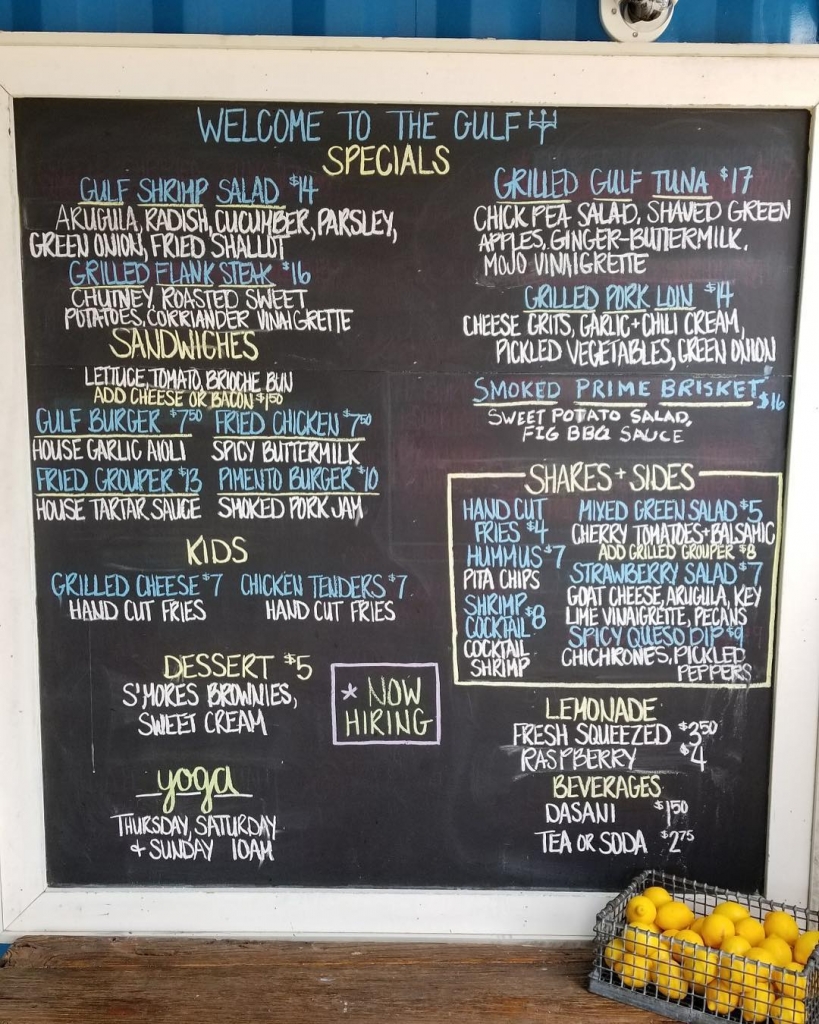 WELCOME TO THE GULF
SPECIALS
GULF SHRIMP SALAD $14
ARUGULA, RADISH, CUCUMBER, PARSLEY,
GREEN ONION, FRIED SHALLOT
GRILLED FLANK STEAK $16
CHUTNEY, ROASTED SWEET
POTATOES, CORRIANDER VINAIGRETTE
GRILLED GULF TUNA $17
CHICK PEA SALAD, SHAVED GREEN
APPLES, GINGER-BUTTERMILK,
MOJO VINAIGRETTE
GRILLED PORK LOIN $14
CHEESE GRITS, GARLIC + CHILI CREAM,
PICKLED VEGETABLES, GREEN ONION
SMOKED PRIME BRISKET $16
SWEET POTATO SALAD,
FIG BBQ SAUCE
SANDWICHES
LETTUCE, TOMATO, BRIOCHE BUN
ADD CHEESE OR BACON $1.50
GULF BURGER $7.50
HOUSE GARLIC AIOLI
FRIED CHICKEN $7.50
SPICY BUTTERMILK
FRIED GROUPER $13
HOUSE TARTAR SAUCE
PIMENTO BURGER $10
SMOKED PORK JAM
KIDS
GRILLED CHEESE $7
HAND CUT FRIES
CHICKEN TENDERS $7
HAND CUT FRIES
DESSERT $5
S'MORES BROWNIES,
SWEET CREAM
* NOW
HIRING
yoga
THURSDAY, SATURDAY
+ SUNDAY 10AM
SHARES + SIDES
HAND CUT
FRIES $4
HUMMUS $7
PITA CHIPS
SHRIMP
COCKTAIL $8
COCKTAIL
SHRIMP
MIXED GREEN SALAD $5
CHERRY TOMATOES + BALSAMIC
ADD GRILLED GROUPER $8
STRAWBERRY SALAD $7
GOAT CHEESE, ARUGULA, KEY
LIME VINAIGRETTE, PECANS
SPICY QUESO DIP $9
CHICHRONES, PICKLED
PEPPERS
LEMONADE
FRESH SQUEEZED $3.50
RASPBERRY $4
BEVERAGES
DASANI $1.50
TEA OR SODA $2.75